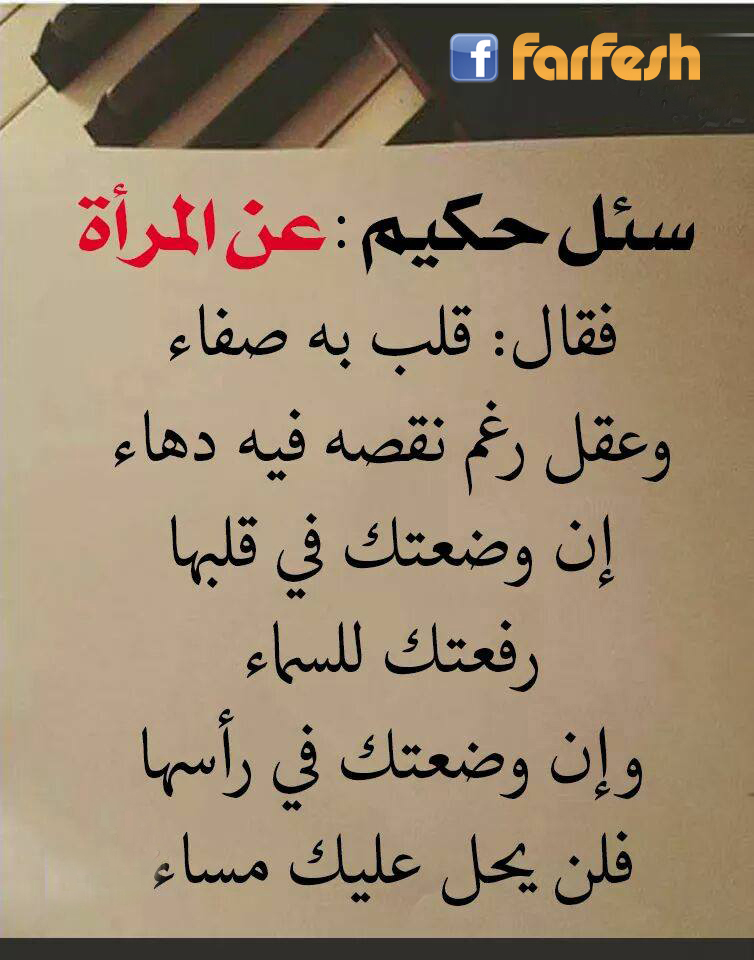 farfesh
سئل حكيم : عن المرأة
فقال: قلب به صفاء
وعقل رغم نقصه فيه دهاء
إن وضعتك في قلبها
رفعتك للسماء
وإن وضعتك في رأسها
فلن يحل عليك مساء